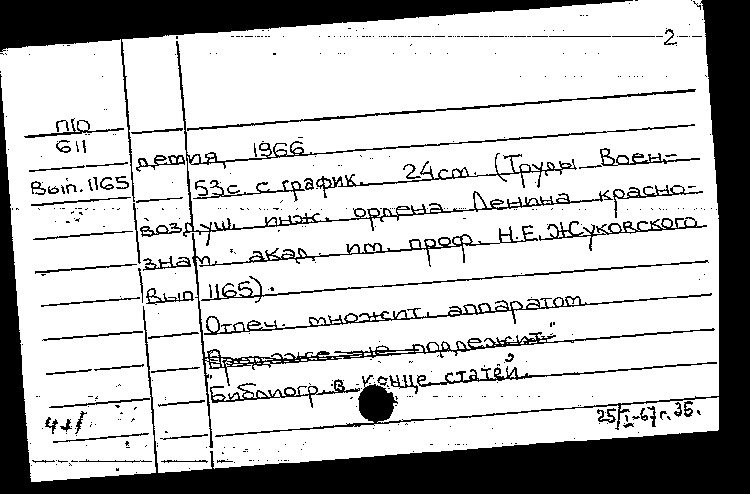 2
П10
611
детия, 1966.
Вып. 1165
53с. с график. 24см. (Труды Воен.-
воздуш. инж. ордена Ленина красно-
знам. акад. им. проф. Н.Е. Жуковского
Вып. 1165).
Отпеч. множит. аппаратом
Продаже не подлежит."
Библиогр. в конце статей.
25/I-67г. 35.